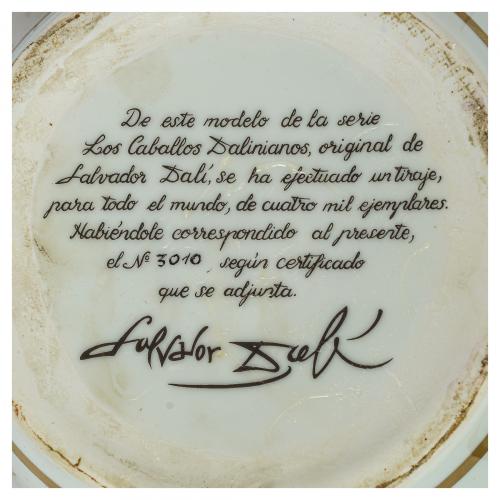 De este modelo de la serie
Los Caballos Dalinianos, original de
Salvador Dalí, se ha efectuado un tiraje,
para todo el mundo, de cuatro mil ejemplares.
Habiéndole correspondido al presente,
el Nº 3010, según certificado
que se adjunta.
Salvador Dalí